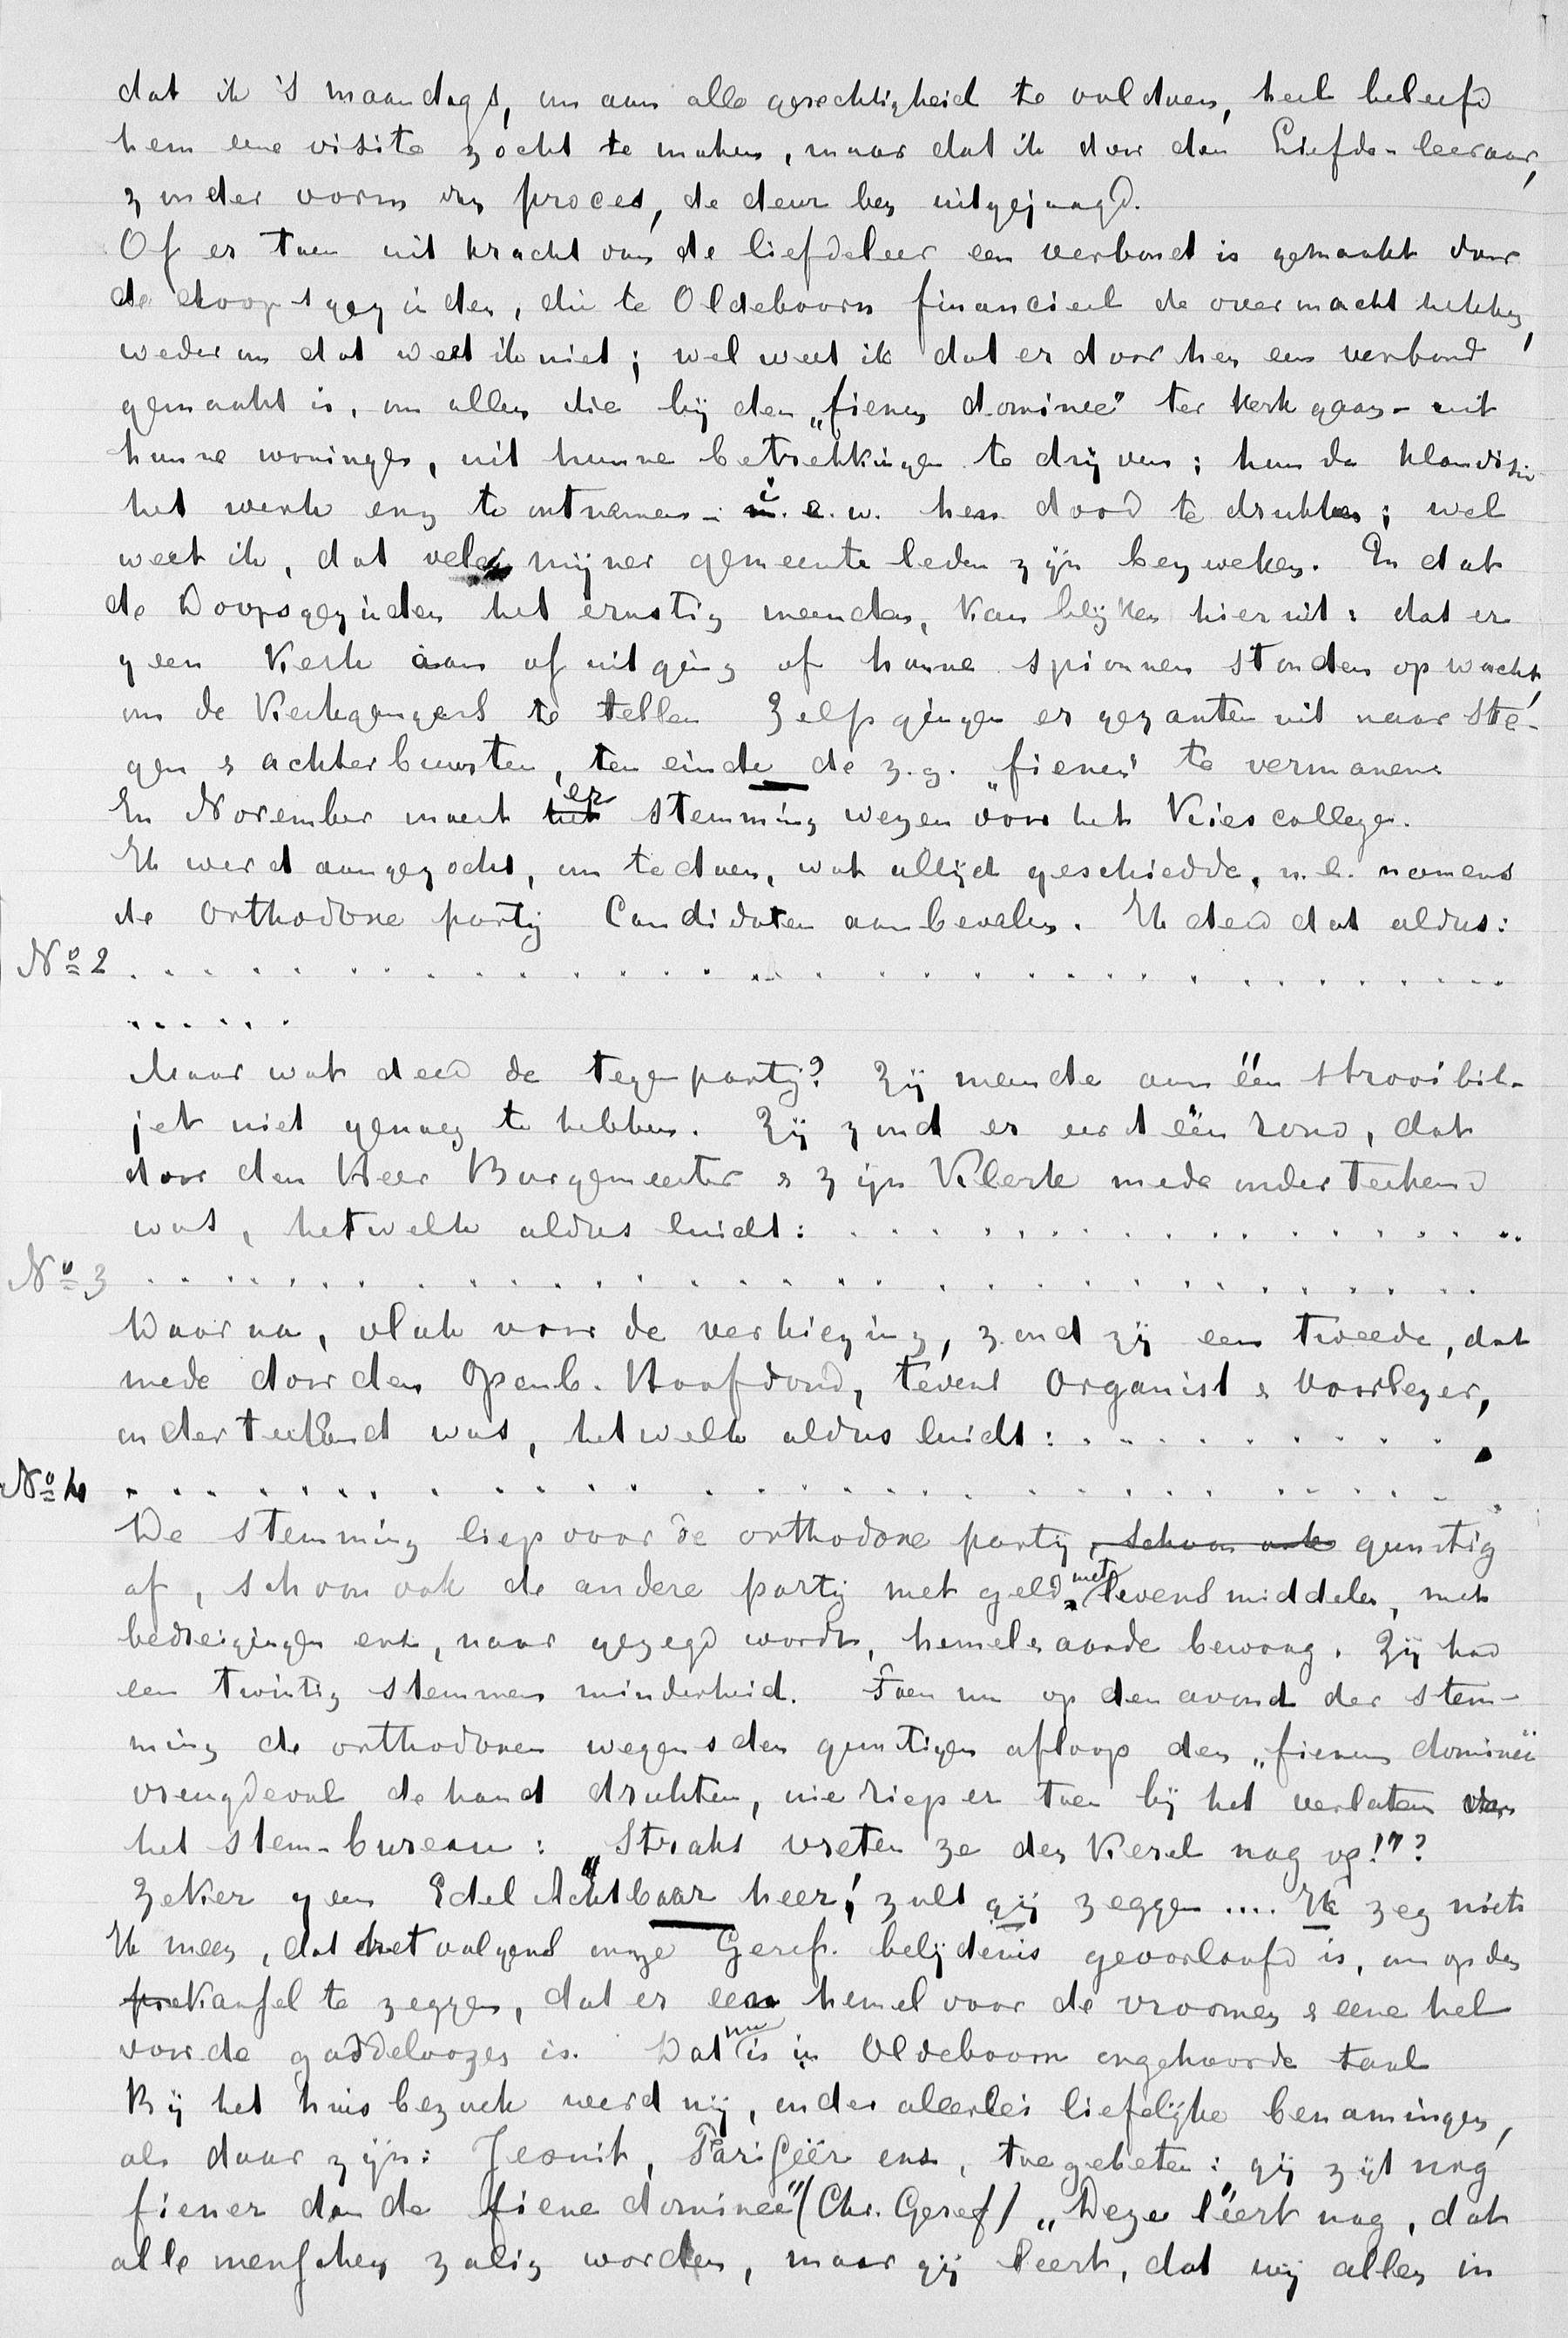 dat ik 's maandags, om aan alle gerechtigheid te voldoen, heel beleefd
hem eene visite zocht te maken, maar dat ik door den Liefde-leeraar,
zonder vorm van proces, de deur ben uitgejaagd.
Of er toen uit kracht van de liefdeleer een verbond is gemaakt door
de doopsgezinden, die te Oldeboorn financieel de overmacht hebben,
wederom dat weet ik niet; wel weet ik dat er door hen een verbond
gemaakt is, om allen die bij den „fienen dominee" ter kerk gaan - uit
hunne woningen, uit hunne betrekkingen te drijven; hun de klandisie
het werk enz te ontnemen - i. e. w. hen dood te drukken; wel
weet ik, dat velen mijner gemeenteleden zijn bezweken. En dat
de Doopsgezinden het ernstig meenden, kan blijken hieruit: dat er
geen kerk aan of uitging of hunne spionnen stonden op wacht,
om de kerkgangers te tellen Zelfs gingen er gezanten uit naar ste-
gen & achterbuurten, ten einde de z.g. „fienen" te vermanen.
In November moest er stemming wezen voor het Kiescollege.
Ik werd aangezocht, om te doen, wat altijd geschiedde, n.l. namens
de orthodoxe partij Candidaten aanbevelen. Ik deed dat aldus:
No 2 . . . . . . . . . . . . . . . . . . . . . . . . . . . .
. . . . . .
Maar wat deed de tegenpartij? Zij meende aan één strooibil-
jet niet genoeg te hebben. Zij zond er eerst één rond, dat
door den Heer Burgemeester & zijn Klerk mede onderteekend
was, hetwelk aldus luidt: . . . . . . . . . . . . . . . . .
No 3 . . . . . . . . . . . . . . . . . . . . . . . . . . . .
Daarna, vlak voor de verkiezing, zond zij een tweede, dat
mede door den Openb. Hoofdond, tevens Organist & Voorlezer,
onderteekend was, hetwelk aldus luidt: . . . . . . . . . .
No 4 . . . . . . . . . . . . . . . . . . . . . . . . . . . .
De stemming liep voor de orthodoxe partij, schoon ook gunstig
af, schoon ook de andere partij met geld met levensmiddelen, met
bedreigingen enz, naar gezegd wordt, hemel & aarde bewoog. Zij had
een twintig stemmen minderheid. Toen nu op den avond der stem-
ming de orthodoxen wegens den gunstigen afloop den „fienen dominee
vreugdevol de hand drukten, wie riep er toen bij het verlaten van
het stem-bureau: „Straks vreten ze den Kerel nog op!"?
Zeker geen Edel Achtbaar heer! zult gij zeggen .... Ik zeg niets
Ik meen, dat het volgens onze Geref. belijdenis geoorloofd is, om op den
Kansel te zeggen, dat er een hemel voor de vroomen & eene hel
voor de goddeloozen is. Dat nu is in Oldeboorn ongehoorde taal
Bij het huisbezoek werd mij, onder allerlei liefelijke benamingen,
als daar zijn: Jesuit, Farizeër enz, toegebeten: gij zijt nog
fiener dan de fiene dominee" (Chr. Geref) „Deze leert nog, dat
alle menschen zalig worden, maar gij leert, dat wij allen in